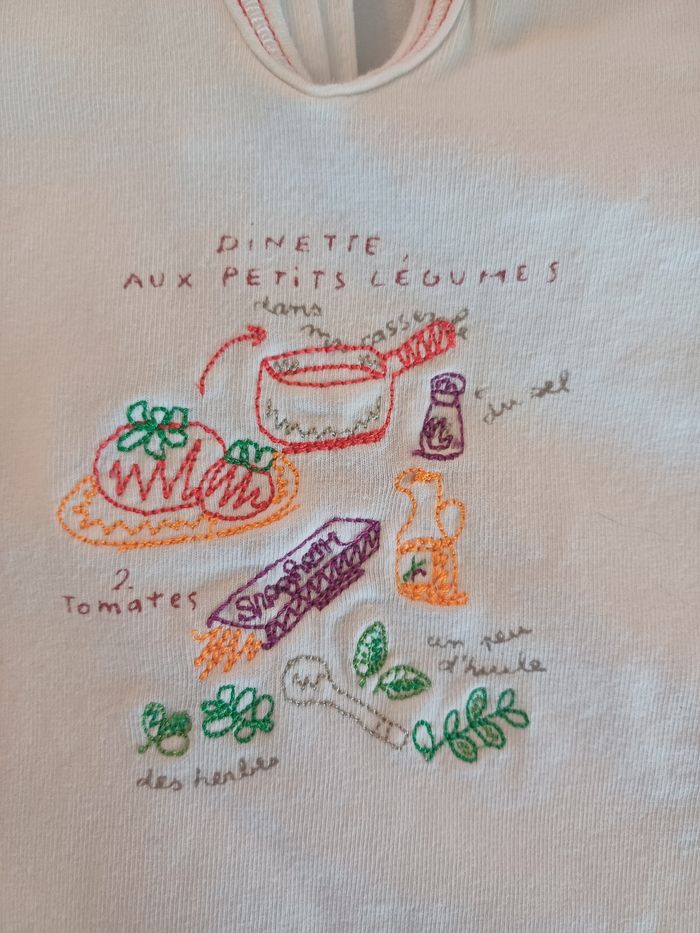 DiNETTE
AUX PETiTS LÉGUMES
dans
ma casserole
du sel
Spaghetti
2
Tomates
un peu
d'huile
des herbes